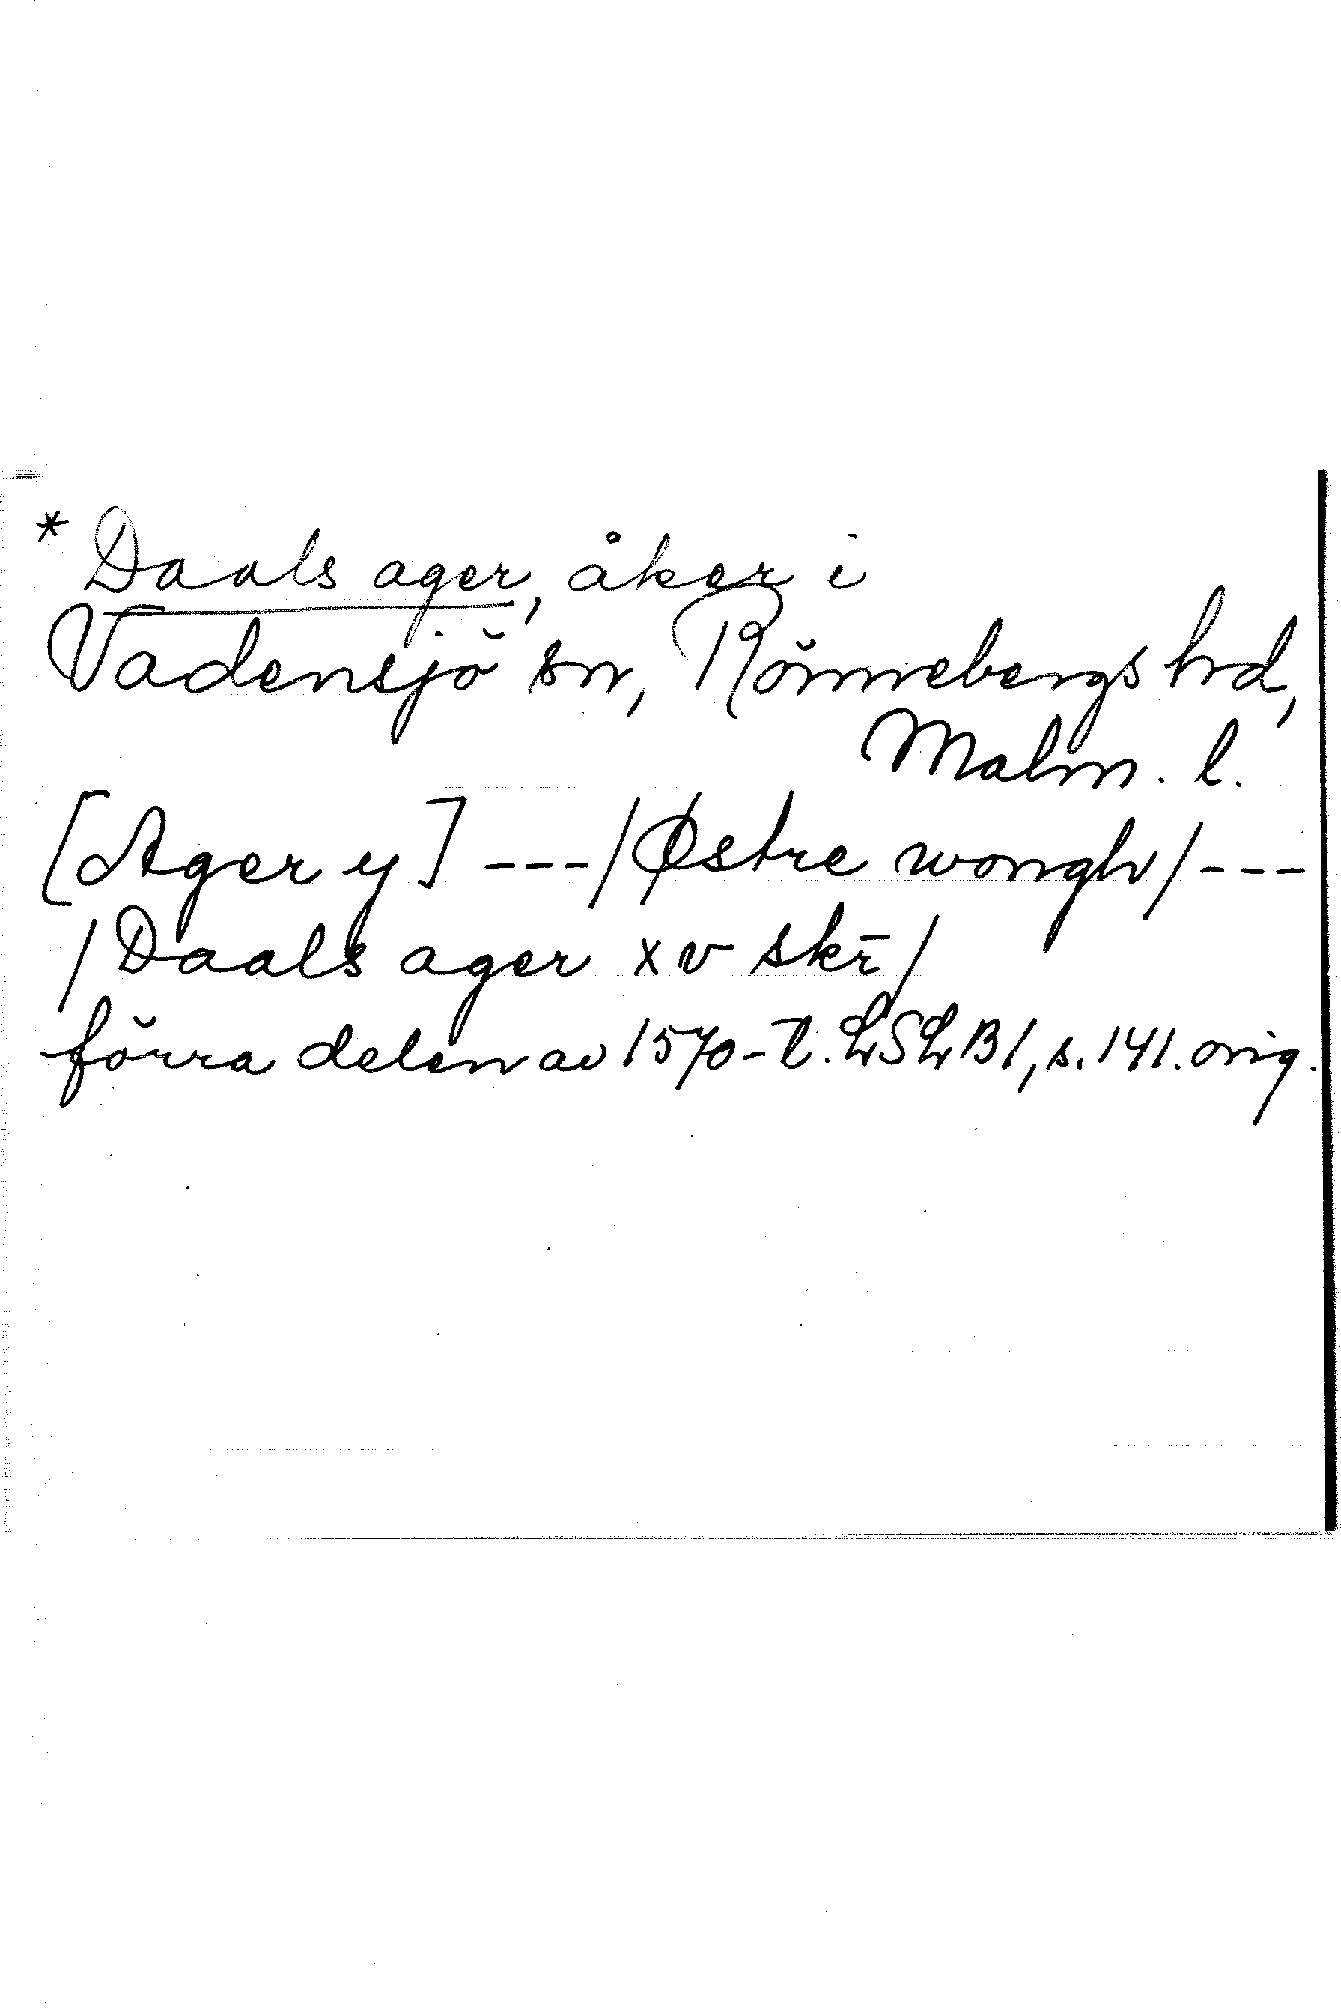 * Daals ager, åker i
Vadensjö sn, Rönnebergs hrd,
Malm. l.
[Ager y] --- /Østre wongh/ ---
/Daals ager xv skr̄/
förra delen av 1570-t. LSLB1, s. 141. orig.